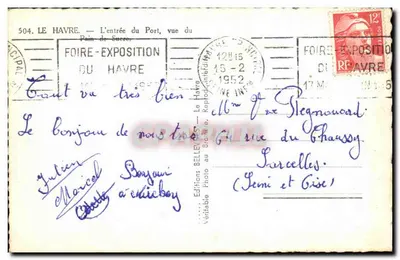 504. LE HAVRE. — L'entrée du Port, vue du
Pain de Sucre.
FOIRE-EXPOSITION
DU HAVRE
12H15
15-2
1952
FOIRE-EXPOSITION
DU HAVRE
12F
RF
Tout va très bien
Le bonjour de nous
Julien
Marcel
Colette
Bonjour
à
Editions BELLEVUES - Le Havre
Véritable Photo au Bromure. Reproduction
Mme Vve Peignouard
rue du Chaussy
Sarcelles
(Seine et Oise)